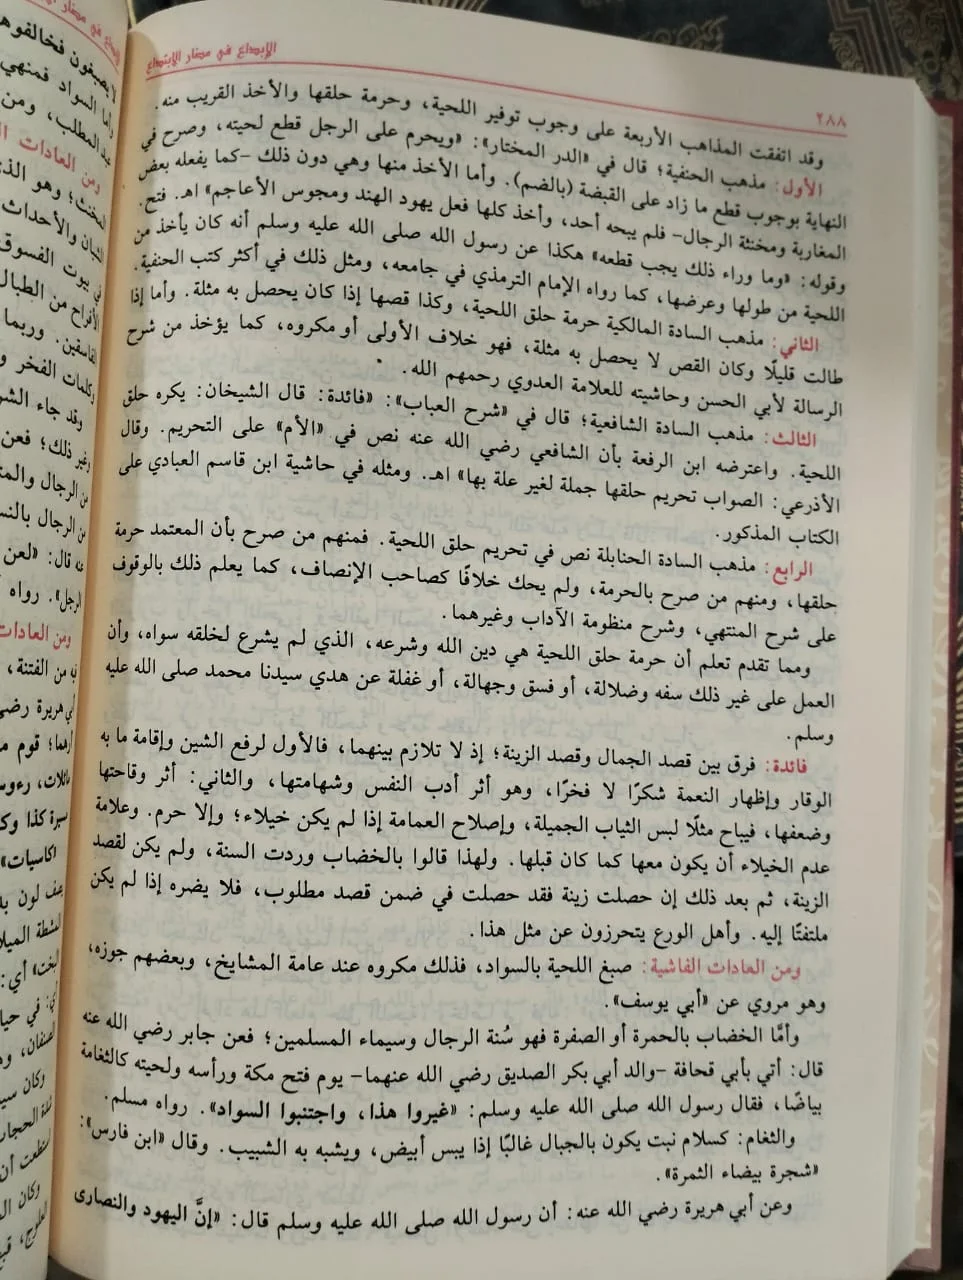 الإبداع في مضار الابتداع
٢٨٨
وقد اتفقت المذاهب الأربعة على وجوب توفير اللحية، وحرمة حلقها والأخذ القريب منه.
الأول: مذهب الحنفية؛ قال في «الدر المختار»: «ويحرم على الرجل قطع لحيته، وصرح في
النهاية بوجوب قطع ما زاد على القبضة (بالضم). وأما الأخذ منها وهي دون ذلك -كما يفعله بعض
المغاربة ومخنثة الرجال- فلم يبحه أحد، وأخذ كلها فعل يهود الهند ومجوس الأعاجم» اهـ. فتح.
وقوله: «وما وراء ذلك يجب قطعه» هكذا عن رسول الله صلى الله عليه وسلم أنه كان يأخذ من
اللحية من طولها وعرضها، كما رواه الإمام الترمذي في جامعه، ومثل ذلك في أكثر كتب الحنفية.
الثاني: مذهب السادة المالكية حرمة حلق اللحية، وكذا قصها إذا كان يحصل به مثلة. وأما إذا
طالت قليلًا وكان القص لا يحصل به مثلة، فهو خلاف الأولى أو مكروه، كما يؤخذ من شرح
الرسالة لأبي الحسن وحاشيته للعلامة العدوي رحمهم الله.
الثالث: مذهب السادة الشافعية؛ قال في «شرح العباب»: «فائدة: قال الشيخان: يكره حلق
اللحية. واعترضه ابن الرفعة بأن الشافعي رضي الله عنه نص في «الأم» على التحريم. وقال
الأذرعي: الصواب تحريم حلقها جملة لغير علة بها» اهـ. ومثله في حاشية ابن قاسم العبادي على
الكتاب المذكور.
الرابع: مذهب السادة الحنابلة نص في تحريم حلق اللحية. فمنهم من صرح بأن المعتمد حرمة
حلقها، ومنهم من صرح بالحرمة، ولم يحك خلافًا كصاحب الإنصاف، كما يعلم ذلك بالوقوف
على شرح المنتهي، وشرح منظومة الآداب وغيرهما.
ومما تقدم تعلم أن حرمة حلق اللحية هي دين الله وشرعه، الذي لم يشرع لخلقه سواه، وأن
العمل على غير ذلك سفه وضلالة، أو فسق وجهالة، أو غفلة عن هدي سيدنا محمد صلى الله عليه
وسلم.
فائدة: فرق بين قصد الجمال وقصد الزينة؛ إذ لا تلازم بينهما، فالأول لرفع الشين وإقامة ما به
الوقار وإظهار النعمة شكرًا لا فخرًا، وهو أثر أدب النفس وشهامتها، والثاني: أثر وقاحتها
وضعفها، فيباح مثلًا لبس الثياب الجميلة، وإصلاح العمامة إذا لم يكن خيلاء؛ وإلا حرم. وعلامة
عدم الخيلاء أن يكون معها كما كان قبلها. ولهذا قالوا بالخضاب وردت السنة، ولم يكن لقصد
الزينة، ثم بعد ذلك إن حصلت زينة فقد حصلت في ضمن قصد مطلوب، فلا يضره إذا لم يكن
ملتفتًا إليه. وأهل الورع يتحرزون عن مثل هذا.
ومن العادات الفاشية: صبغ اللحية بالسواد، فذلك مكروه عند عامة المشايخ، وبعضهم جوزه،
وهو مروي عن «أبي يوسف».
وأمَّا الخضاب بالحمرة أو الصفرة فهو سُنة الرجال وسيماء المسلمين؛ فعن جابر رضي الله عنه
قال: أتي بأبي قحافة -والد أبي بكر الصديق رضي الله عنهما- يوم فتح مكة ورأسه ولحيته كالثغامة
بياضًا، فقال رسول الله صلى الله عليه وسلم: «غيروا هذا، واجتنبوا السواد». رواه مسلم.
والثغام: كسلام نبت يكون بالجبال غالبًا إذا يبس أبيض، ويشبه به الشيب. وقال «ابن فارس»:
«شجرة بيضاء الثمرة».
وعن أبي هريرة رضي الله عنه: أن رسول الله صلى الله عليه وسلم قال: «إنَّ اليهود والنصارى